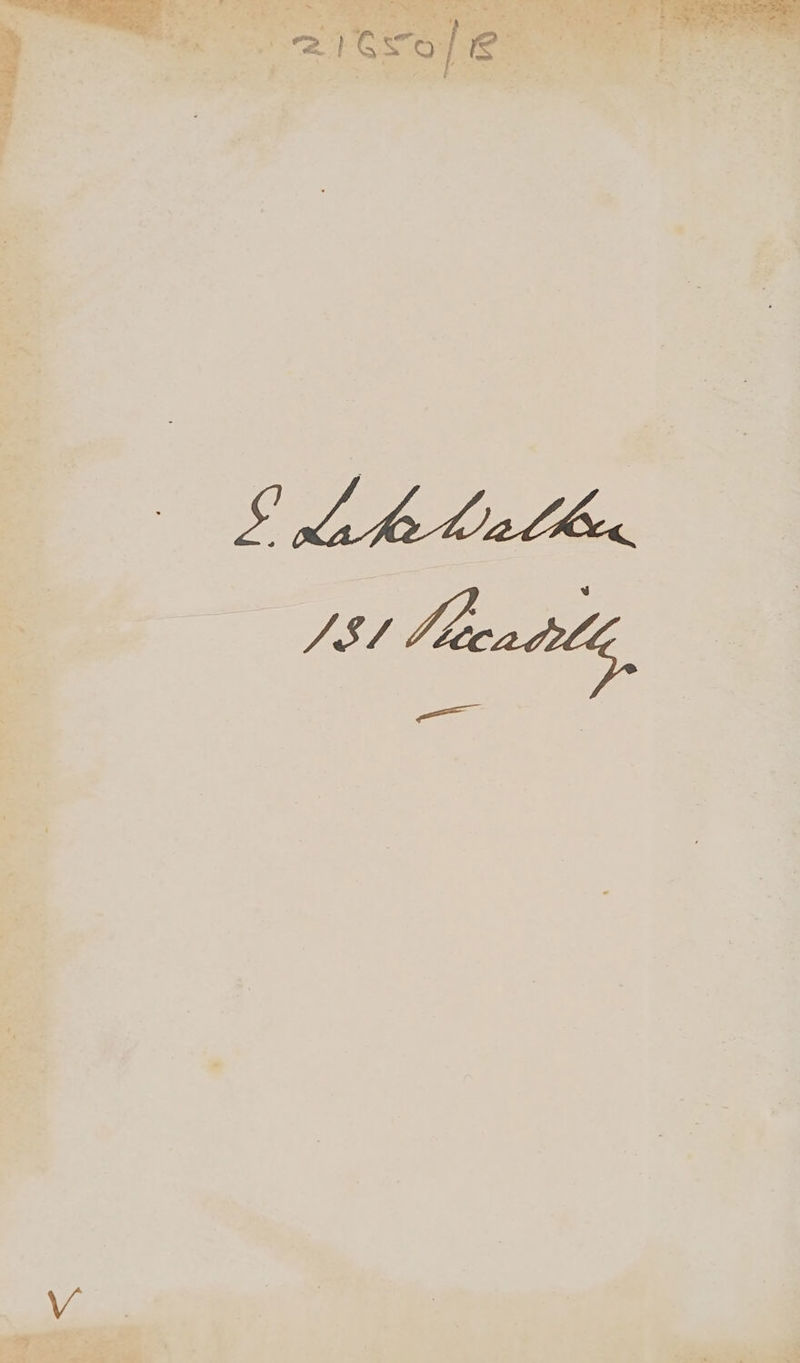 21650/B
E. Lake Walker
131 Piccadilly
V